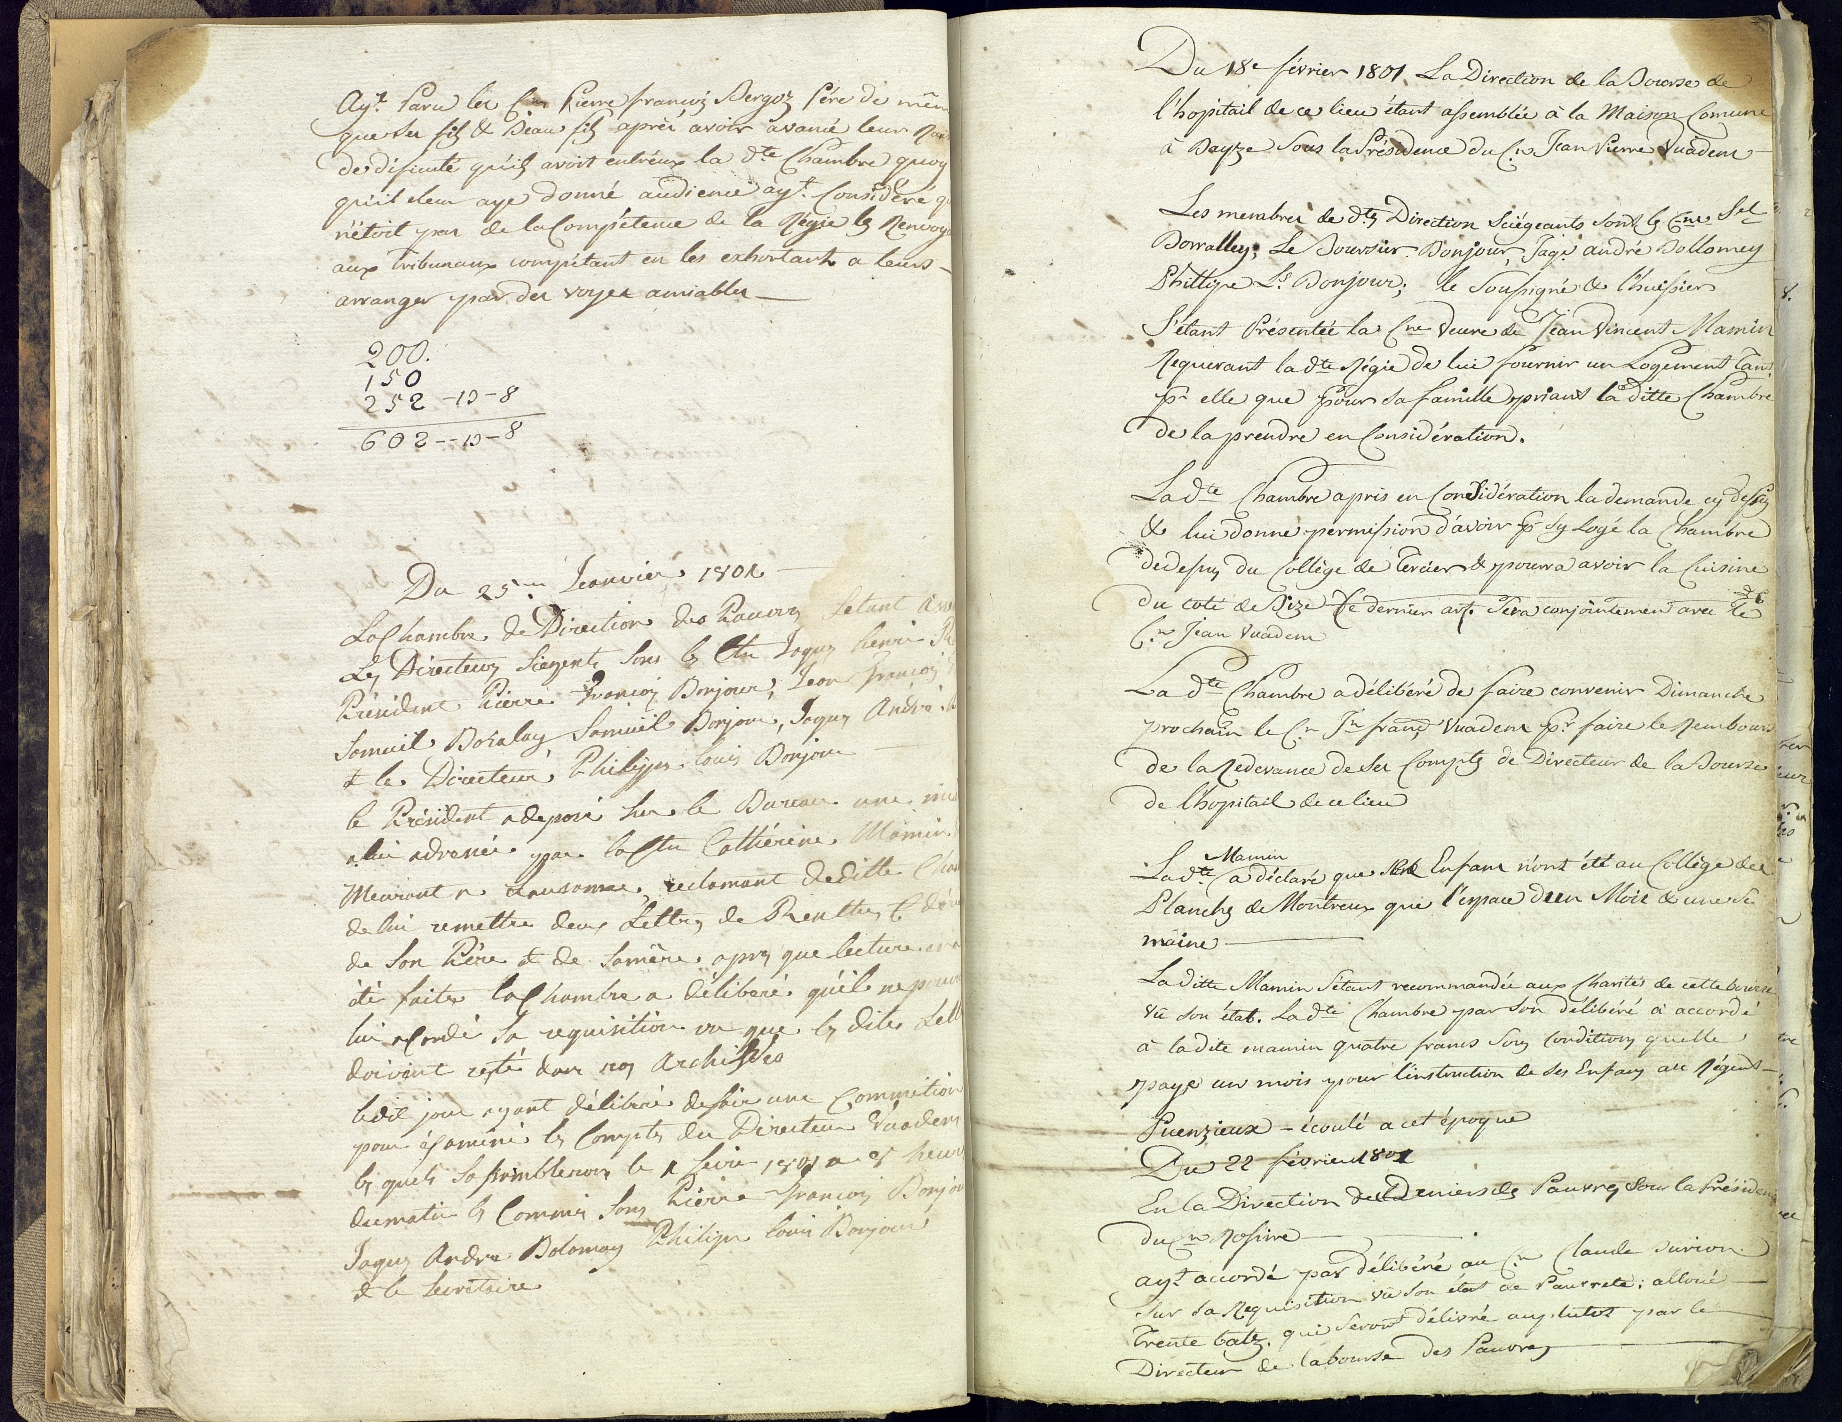 Ayt. Paru les Cns Pierre françois Bergoz Pére de mêm
que ses fils & Beau fils aprèi avoir avancé leur
de dificulté qu'il avoit entr'eux la dte Chambre quoy
qu'il leur aye donné audience ayt. Considéré q
n'étoit pas de la Compétence de la Régie les Renvoye
aux tribunaux compétant en les exhortant a leurs
arranger par des voyes amiables
200.
150
252 -13-8
602--13-8
Du 25me Jeanvier 1801
La Chambre de Direction des Pauvres Setant
Les Directeurs Siegents Sons les Ctn Jaques henri
Président Pierre François Bonjour, Jean françois
Samuil Boralay Samuil Bonjour, Jaques André
& le Directeur Philippe Louis Bonjour
le Président a deposé sur le Bureau une
a lui adressée par la Ctn Cathérine Mamin
Meurant a Lausanne, reclamant de ditte Cha
de lui remettre deux Lettres de Rentes
de Son Père et de Samère. apres que lecture
été faite la Chambre a délibéré quéil ne peu
lui acordé Sa requisition vu que les dites Lett
doivent resté dans nos Archives
ledit jour ayant délibéré defaire une Commition
pour éxaminé les Comptes du Directeur Vuadens
les quels Sassembleront le 1 fevrier 1801 a 8 heure
dumatin les Commis Sons Pierre François Bonjour
Jaques André Bolomay Philipe Louis Bonjour
& le Secrétaire
Du 18e février 1801 La Direction de la Bourse de
l'hopitail de ce lieu étant assemblée à la Maison Comune
à Bayze Sous la Présidence du Cn Jean Pierre Vuadens
Les membres de dte Direction Sciégeants sont les Cns Sel
Borralley; Le Boursier Bonjour, Jaqs andré Bollomey
Phillipe Ls Bonjour; le Soussigné & l'huissier
S'étant Présentée la Cne Veuve de Jean Vincent Mamin
Requerant la dte Régie de lui fournir un Logement tant
pr elle que pour sa famille priant la ditte Chambre
de la prendre en Considération.
La dte Chambre a pris en Considération la demande cy dessus
& lui donne permission d'avoir pr sy Logé la Chambre
dedessus du Collège de Tercier & pourra avoir la Cuisine
du coté de Bize Ce dernier art. sera conjointemen avec le
Cn Jean Vuadens
La dte Chambre a délibéré de faire convenir Dimanche
prochain le Cn Jn franç Vuadens pr faire le Rembours
de la Redevance de ses Comptes de Directeur de la Bourse
de l'hopitail de ce lieu
Mamin
La dte a déclaré que ses Enfans n'ont été au Collège des
Planches de Montreux que l'espace d'un Mois & une Se
maine
La ditte Mamin S'étant recommandée aux Charités de cette bourse
vû son état. La dte Chambre par son délibéré a accordé
à la dite mamin quatre francs Sous Conditions quelle
paye un mois pour l'instruction de ses Enfans au Régent
Puenzieux - écoulé a cet époque
Du 22 février 1801
En la Direction des Deniers des Pauvres Sous la Présidence
du Cn Rossire
ayt accordé par délibéré au Cn Claude Durion
Sur sa Requisition vu son état de Pauvreté: alloué
trente batz. qui seront délivré auplutot par le
Directeur de la bourse des Pauvres